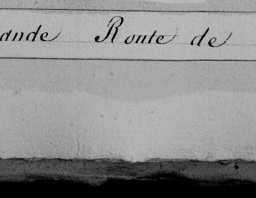 ande Route de